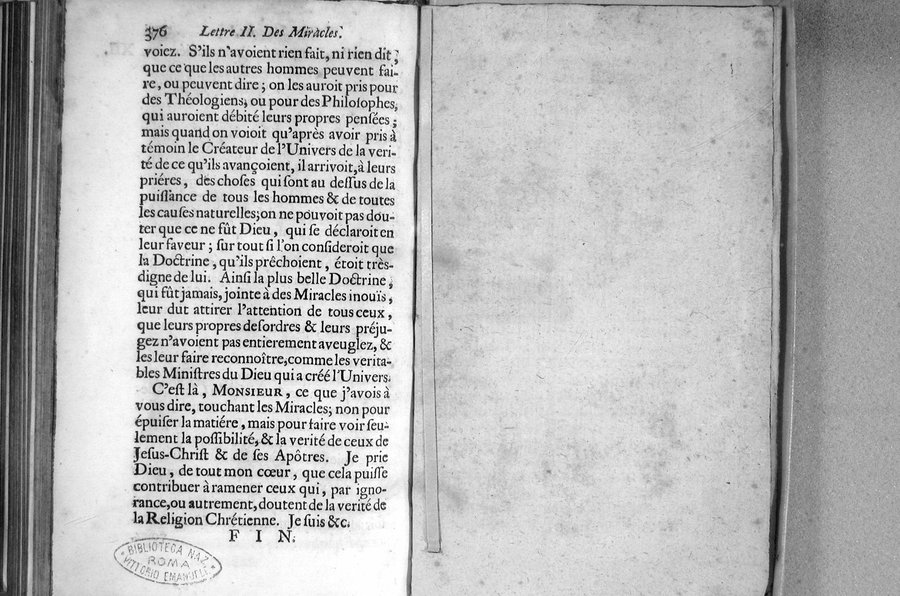 376 Lettre II. Des Miracles.
voiez. S'ils n'avoient rien fait, ni rien dit,
que ce que les autres hommes peuvent fai-
re, ou peuvent dire; on les auroit pris pour
des Théologiens, ou pour des Philoſophes,
qui auroient débité leurs propres penſées;
mais quand on voioit qu'après avoir pris à
témoin le Créateur de l'Univers de la veri-
té de ce qu'ils avançoient, il arrivoit, à leurs
priéres, des choſes qui ſont au deſſus de la
puiſſance de tous les hommes & de toutes
les cauſes naturelles; on ne pouvoit pas dou-
ter que ce ne fût Dieu, qui ſe déclaroit en
leur faveur; ſur tout ſi l'on conſideroit que
la Doctrine, qu'ils prêchoient, étoit très-
digne de lui. Ainſi la plus belle Doctrine,
qui fût jamais, jointe à des Miracles inouïs,
leur dut attirer l'attention de tous ceux,
que leurs propres deſordres & leurs préju-
gez n'avoient pas entierement aveuglez, &
les leur faire reconnoître, comme les verita-
bles Miniſtres du Dieu qui a créé l'Univers.
C'eſt là, MONSIEUR, ce que j'avois à
vous dire, touchant les Miracles; non pour
épuiſer la matiére, mais pour faire voir ſeu-
lement la poſſibilité, & la verité de ceux de
Jeſus-Chriſt & de ſes Apôtres. Je prie
Dieu, de tout mon cœur, que cela puiſſe
contribuer à ramener ceux qui, par igno-
rance, ou autrement, doutent de la verité de
la Religion Chrétienne. Je ſuis &c.
FIN.
BIBLIOTECA NAZ.
ROMA
VITTORIO EMANUELE